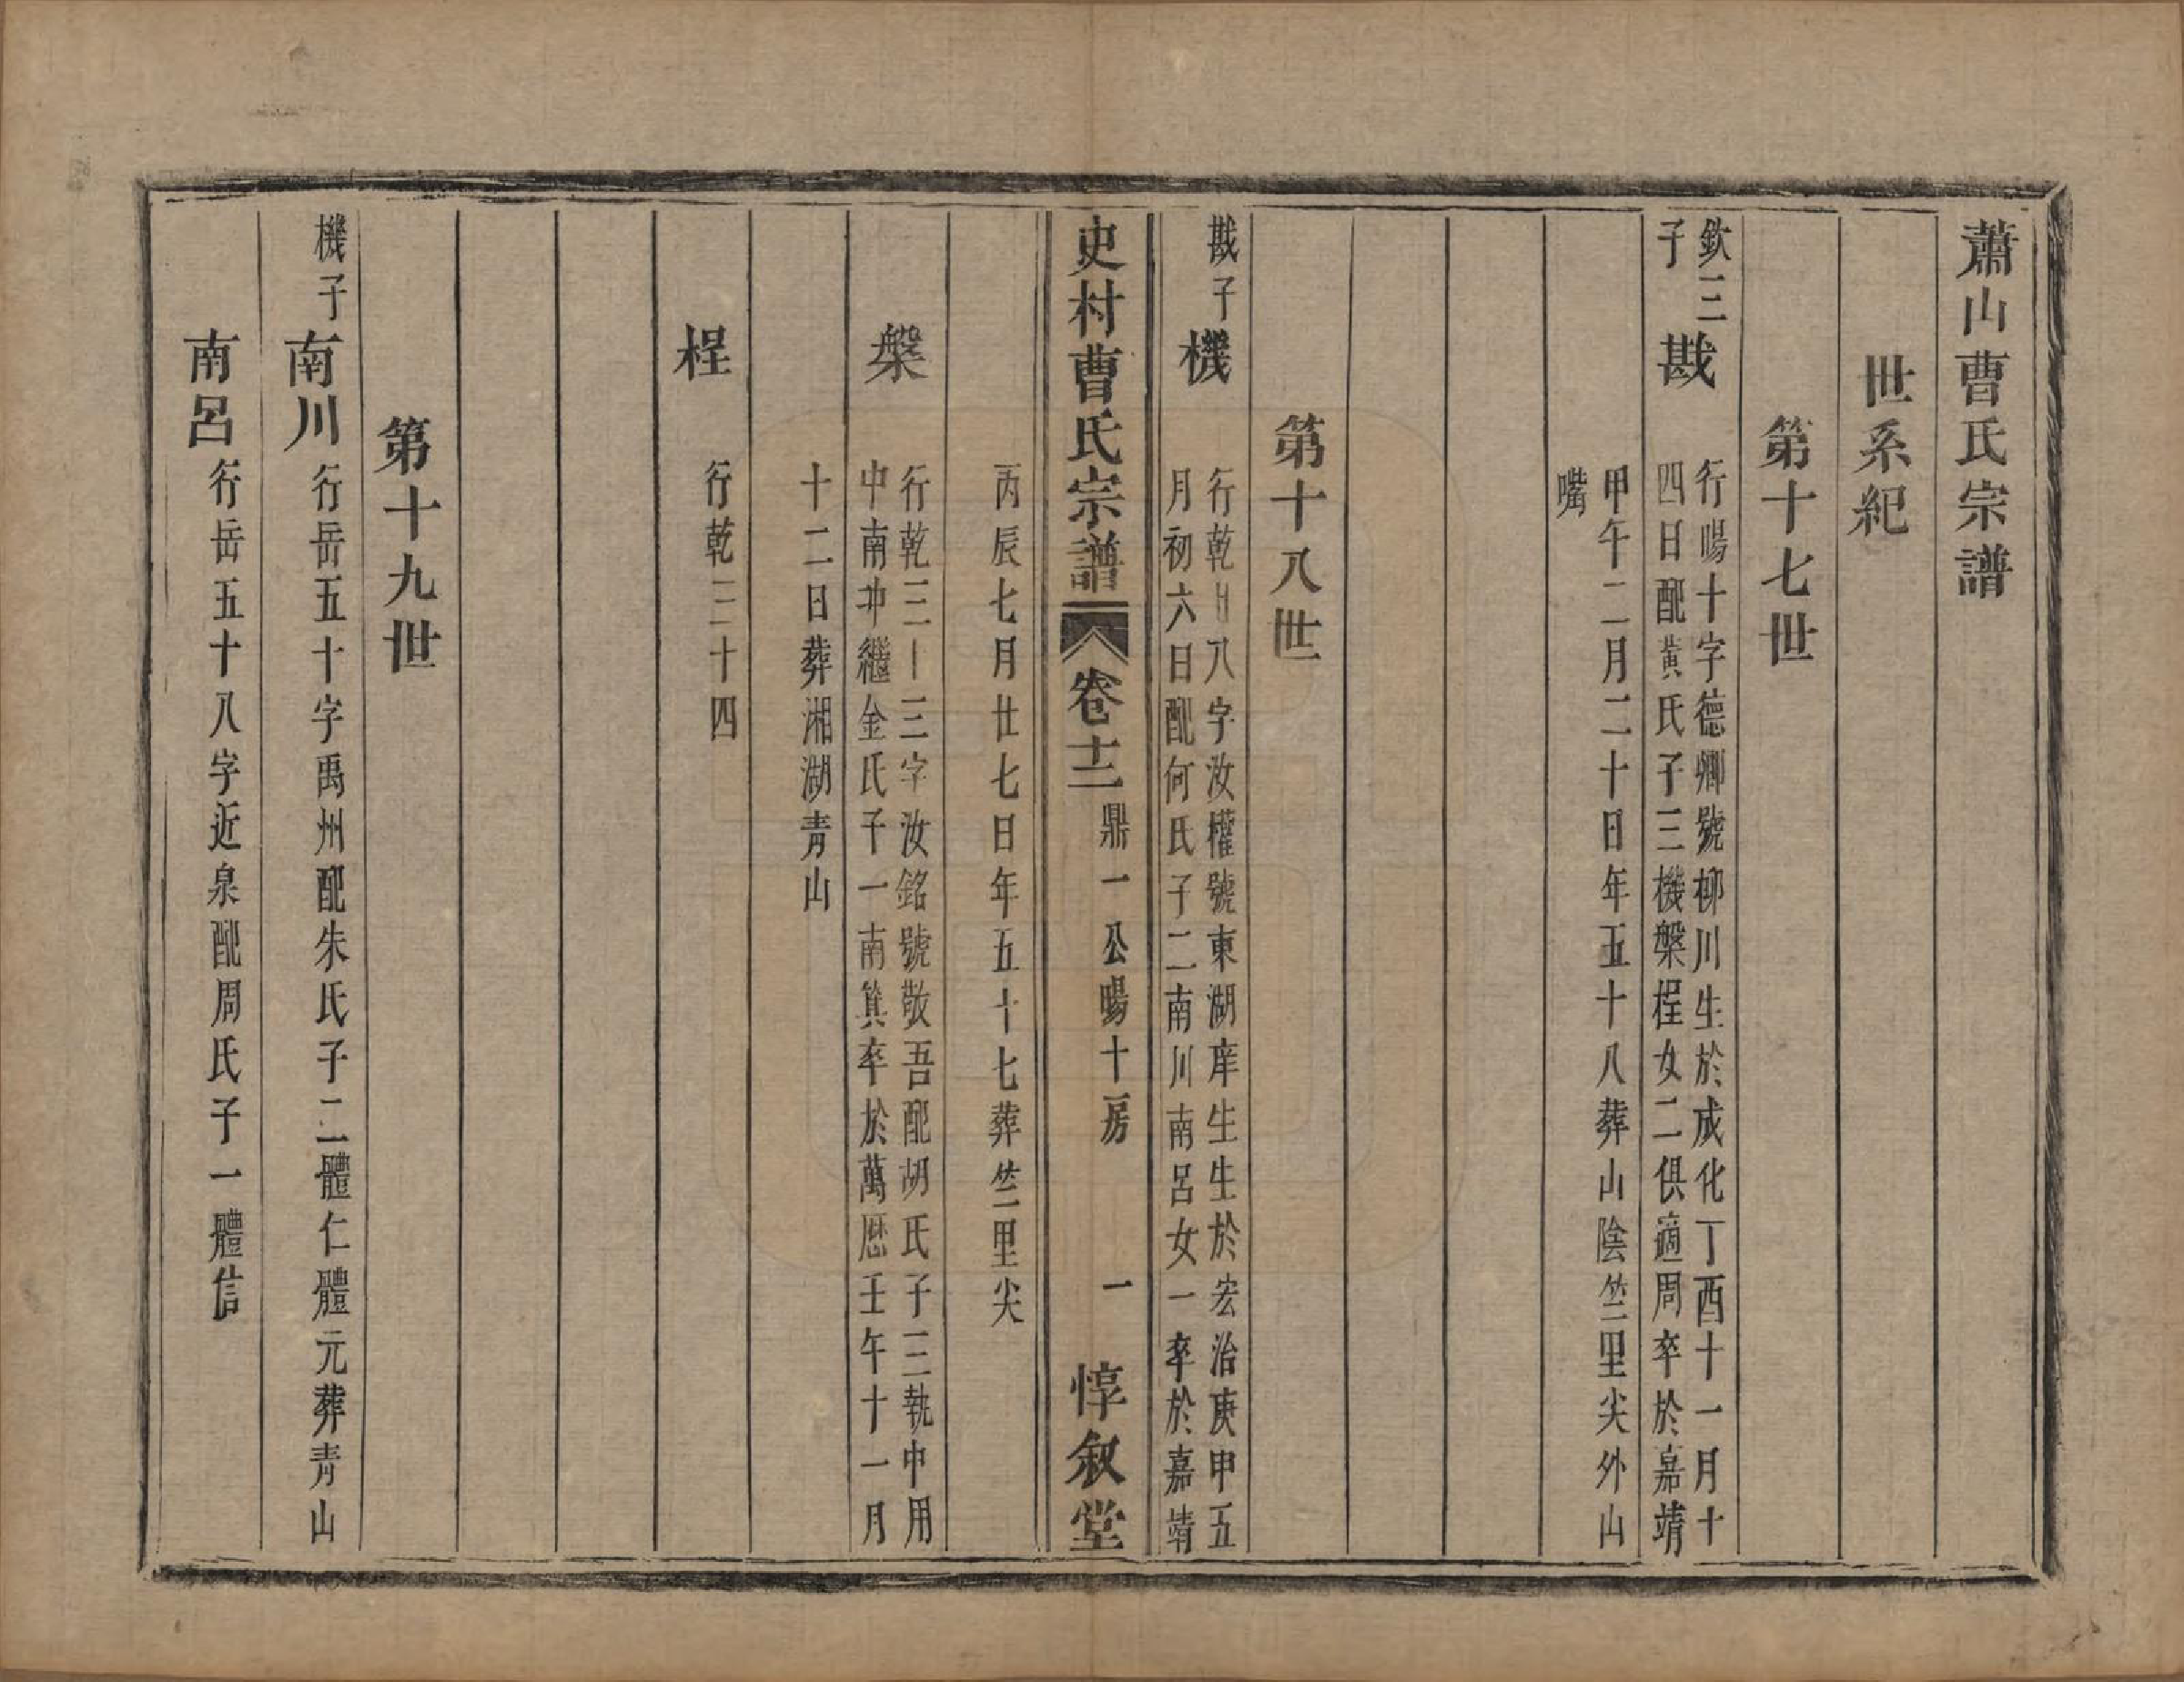 蕭山曹氏宗譜
世系紀
第十七世
欽三
子
戡
行暘十字德卿號柳川生於成化丁酉十一月十
四日配黃氏子三機槃桯女二俱適周卒於嘉靖
甲午二月二十日年五十八葬山陰竺里尖外山
嘴
第十八世
戡子
機
行乾廿八字汝權號東湖庠生生於宏治庚申五
月初六日配何氏子二南川南呂女一卒於嘉靖
史村曹氏宗譜 卷十二 鼎一公暘十房 一 惇叙堂
丙辰七月廿七日年五十七葬竺里尖
槃
行乾三十三字汝銘號敬吾配胡氏子三執中用
中南冲繼金氏子一南箕卒於萬厯壬午十一月
十二日葬湘湖青山
桯
行乾三十四
第十九世
機子
南川
行岳五十字禹州配朱氏子二體仁體元葬青山
南呂
行岳五十八字近泉配周氏子一體信